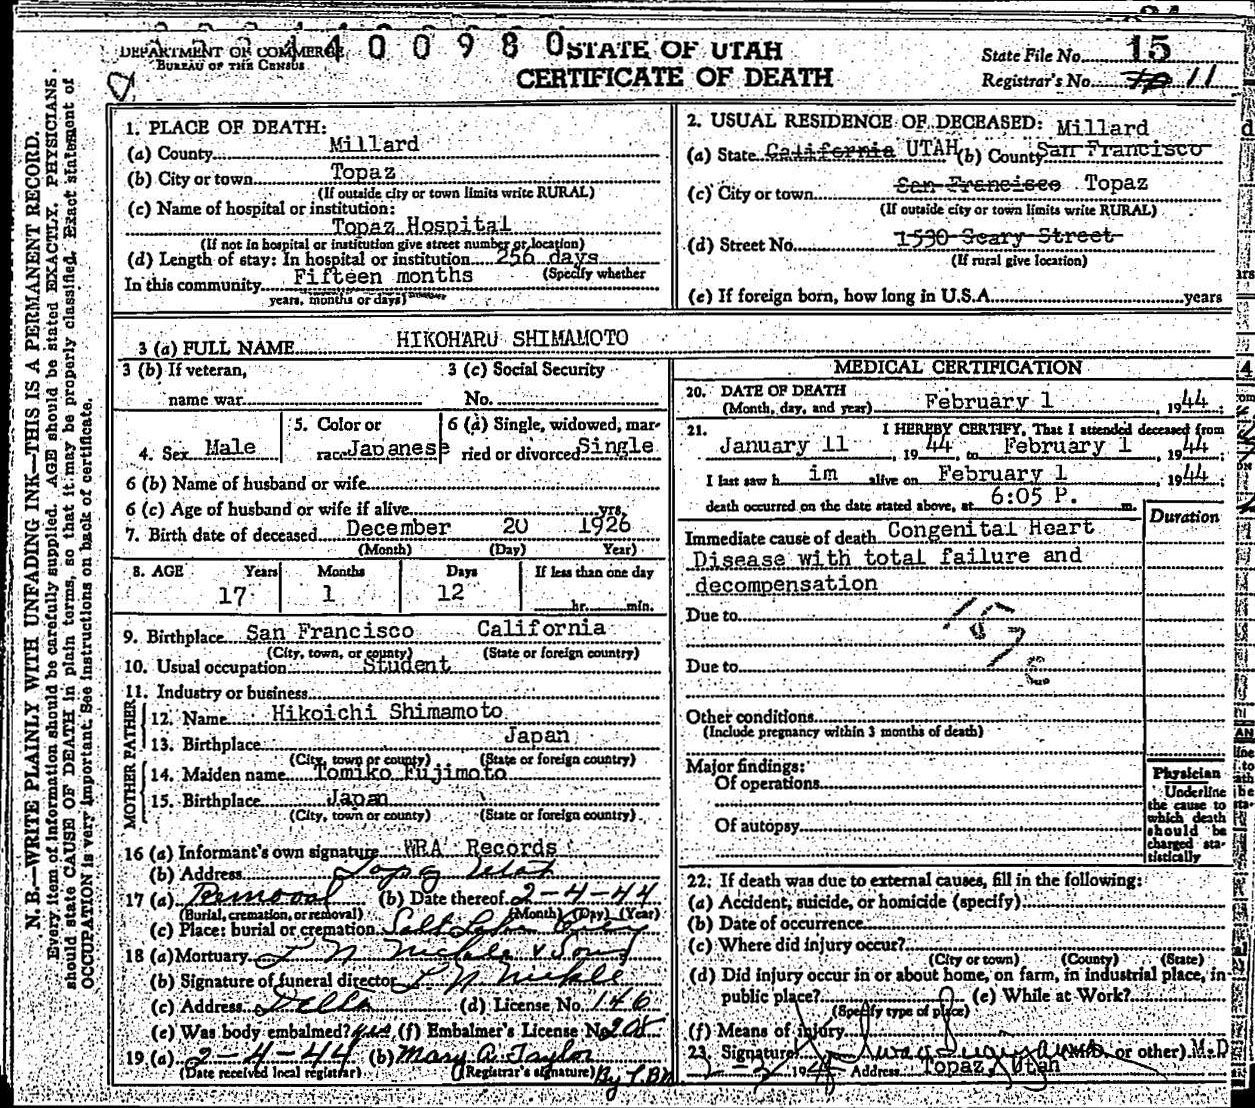 2 2 4 4 0 0 9 8 0
DEPARTMENT OF COMMERCE
BUREAU OF THE CENSUS
STATE OF UTAH
CERTIFICATE OF DEATH
State File No. 15
Registrar's No. 11
N. B.—WRITE PLAINLY WITH UNFADING INK—THIS IS A PERMANENT RECORD.
Every item of information should be carefully supplied. AGE should be stated EXACTLY. PHYSICIANS
should state CAUSE OF DEATH in plain terms, so that it may be properly classified. Exact statement of
OCCUPATION is very important. See instructions on back of certificate.
1. PLACE OF DEATH:
(a) County Millard
(b) City or town Topaz
(If outside city or town limits write RURAL)
(c) Name of hospital or institution:
Topaz Hospital
(If not in hospital or institution give street number or location)
(d) Length of stay: In hospital or institution 256 days
(Specify whether
In this community Fifteen months
years, months or days)
2. USUAL RESIDENCE OF DECEASED: Millard
(a) State California UTAH (b) County San Francisco
(c) City or town San Francisco Topaz
(If outside city or town limits write RURAL)
(d) Street No. 1530 Geary Street
(If rural give location)
(e) If foreign born, how long in U.S.A. years
3 (a) FULL NAME HIKOHARU SHIMAMOTO
3 (b) If veteran,
name war
3 (c) Social Security
No.
4. Sex Male
5. Color or
race Japanese
6 (a) Single, widowed, mar-
ried or divorced Single
6 (b) Name of husband or wife
6 (c) Age of husband or wife if alive yrs.
7. Birth date of deceased December 20 1926
(Month) (Day) Year)
8. AGE Years Months Days If less than one day
17 1 12 hr. min.
9. Birthplace San Francisco California
(City, town, or county) (State or foreign country)
10. Usual occupation Student
11. Industry or business
FATHER
12. Name Hikoichi Shimamoto
13. Birthplace Japan
(City, town or county) (State or foreign country)
MOTHER
14. Maiden name Tomiko Fujimoto
15. Birthplace Japan
(City, town or county) (State or foreign country)
16 (a) Informant's own signature WRA Records
(b) Address Topaz Utah
17 (a) Removal (b) Date thereof 2-4-44
(Burial, cremation, or removal) (Month) (Day) (Year)
(c) Place: burial or cremation Salt Lake City
18 (a) Mortuary L N Nickle & Sons
(b) Signature of funeral director L N Nickle
(c) Address Delta (d) License No. 146
(e) Was body embalmed? yes (f) Embalmer's License No.
19 (a) 2-4-44 (b) Mary A. Taylor
(Date received local registrar) (Registrar's signature) By
MEDICAL CERTIFICATION
20. DATE OF DEATH
(Month, day, and year) February 1, 1944;
21. I HEREBY CERTIFY, That I attended deceased from
January 11, 1944 to February 1, 1944;
I last saw him alive on February 1, 1944;
death occurred on the date stated above, at 6:05 P. m.
Duration
Immediate cause of death Congenital Heart
Disease with total failure and
decompensation
Due to
157 c
Due to
Other conditions
(Include pregnancy within 3 months of death)
Major findings:
Of operations
Of autopsy
Physician
Underline
the cause to
which death
should be
charged sta-
tistically
22. If death was due to external causes, fill in the following:
(a) Accident, suicide, or homicide (specify)
(b) Date of occurrence
(c) Where did injury occur?
(City or town) (County) (State)
(d) Did injury occur in or about home, on farm, in industrial place, in
public place? (e) While at Work?
(Specify type of place)
(f) Means of injury
23. Signature (M.D. or other) M.D
1944 Address Topaz, Utah